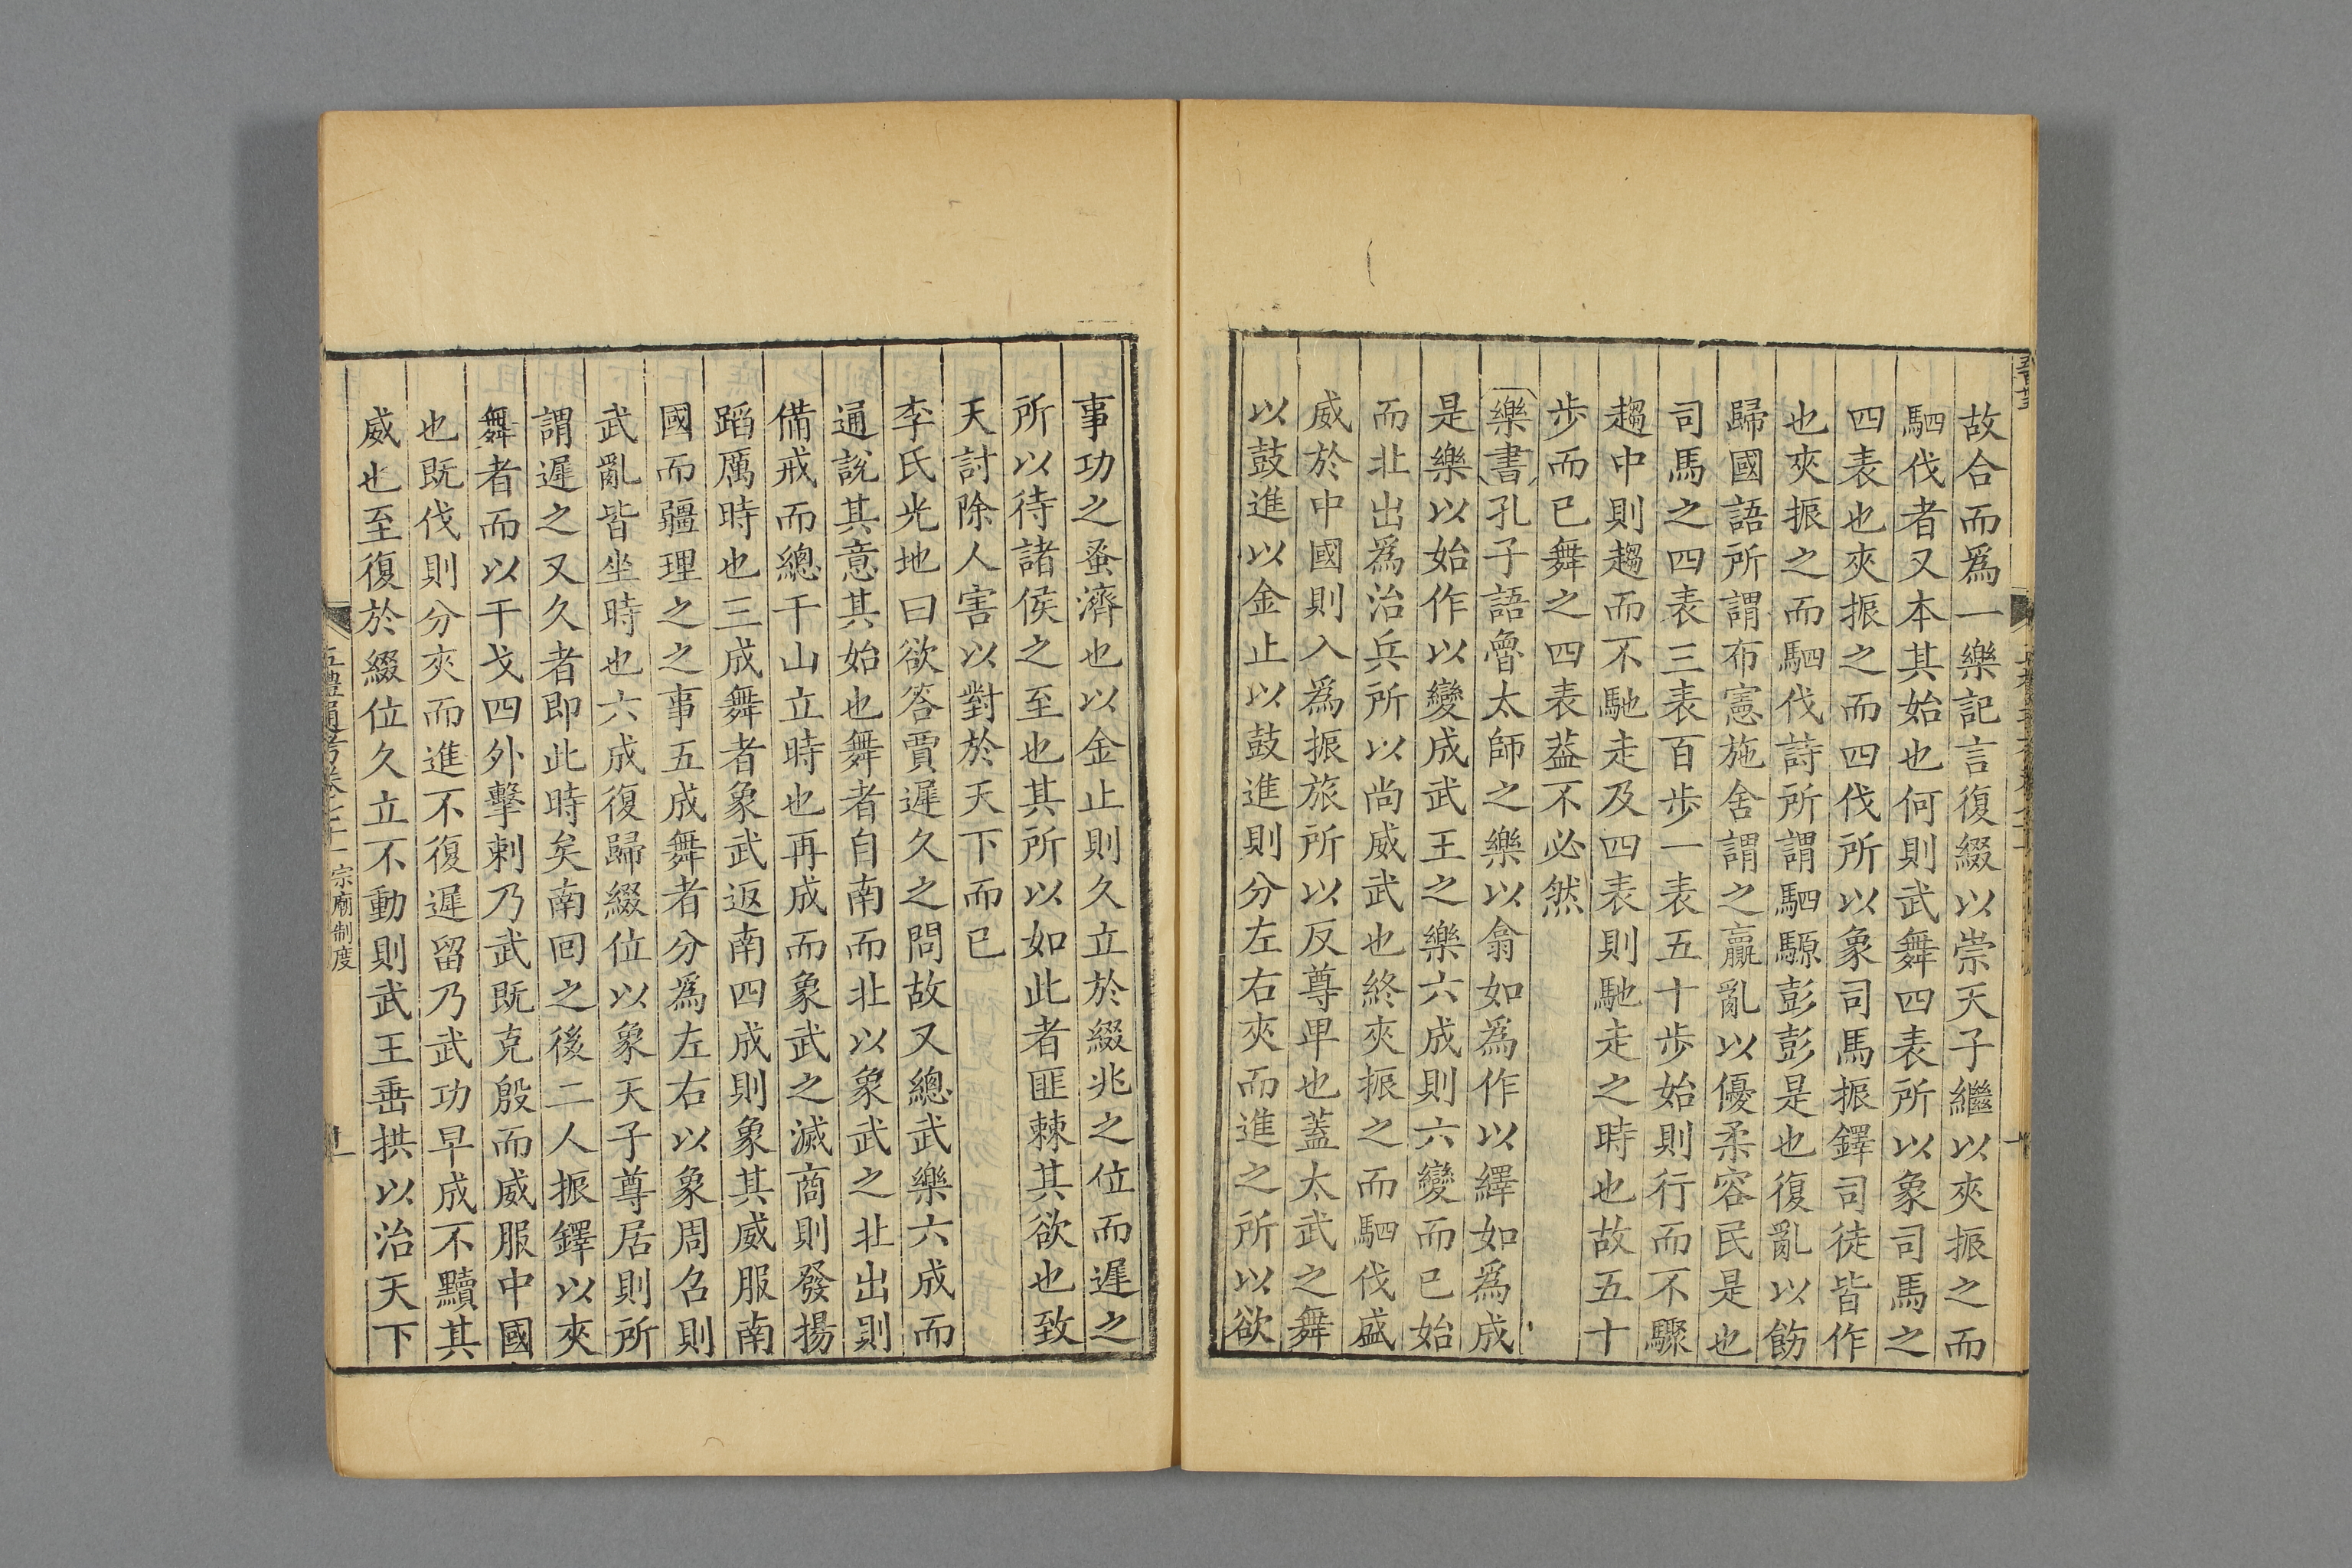 故合而爲一樂記言復綴以崇天子繼以夾振之而
駟伐者又本其始也何則武舞四表所以象司馬之
四表也夾振之而四伐所以象司馬振鐸司徒皆作
也夾振之而駟伐詩所謂駟騵彭彭是也復亂以飭
歸國語所謂布憲施舍謂之羸亂以優柔容民是也
司馬之四表三表百步一表五十步始則行而不驟
趨中則趨而不馳走及四表則馳走之時也故五十
步而已舞之四表葢不必然
樂書孔子語魯太師之樂以翕如爲作以繹如爲成
是樂以始作以變成武王之樂六成則六變而已始
而北出爲治兵所以尚威武也終夾振之而駟伐盛
威於中國則入爲振旅所以反尊卑也蓋太武之舞
以鼓進以金止以鼓進則分左右夾而進之所以欲
事功之蚤濟也以金止則久立於綴兆之位而遲之
所以待諸侯之至也其所以如此者匪棘其欲也致
天討除人害以對於天下而已
李氏光地曰欲答賈遲久之問故又總武樂六成而
通說其意其始也舞者自南而北以象武之北出則
備戒而總干山立時也再成而象武之滅商則發揚
蹈厲時也三成舞者象武返南四成則象其威服南
國而疆理之之事五成舞者分爲左右以象周召則
武亂皆坐時也六成復歸綴位以象天子尊居則所
謂遲之又久者即此時矣南回之後二人振鐸以夾
舞者而以干戈四外擊刺乃武既克殷而威服中國
也既伐則分夾而進不復遲留乃武功早成不黷其
威也至復於綴位久立不動則武王垂拱以治天下
宗廟制度